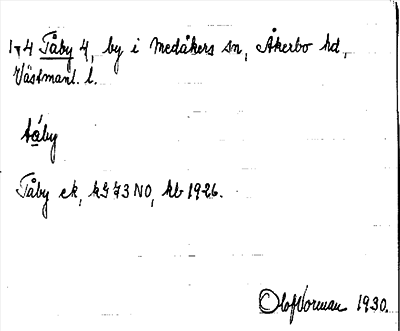 1-4 Tåby 4, by i Medåkers sn, Åkerbo hd,
Västmanl. l.
tǻby
Tåby ek, kg 73 NO, kb 1926.
Olof Vorman 1930.